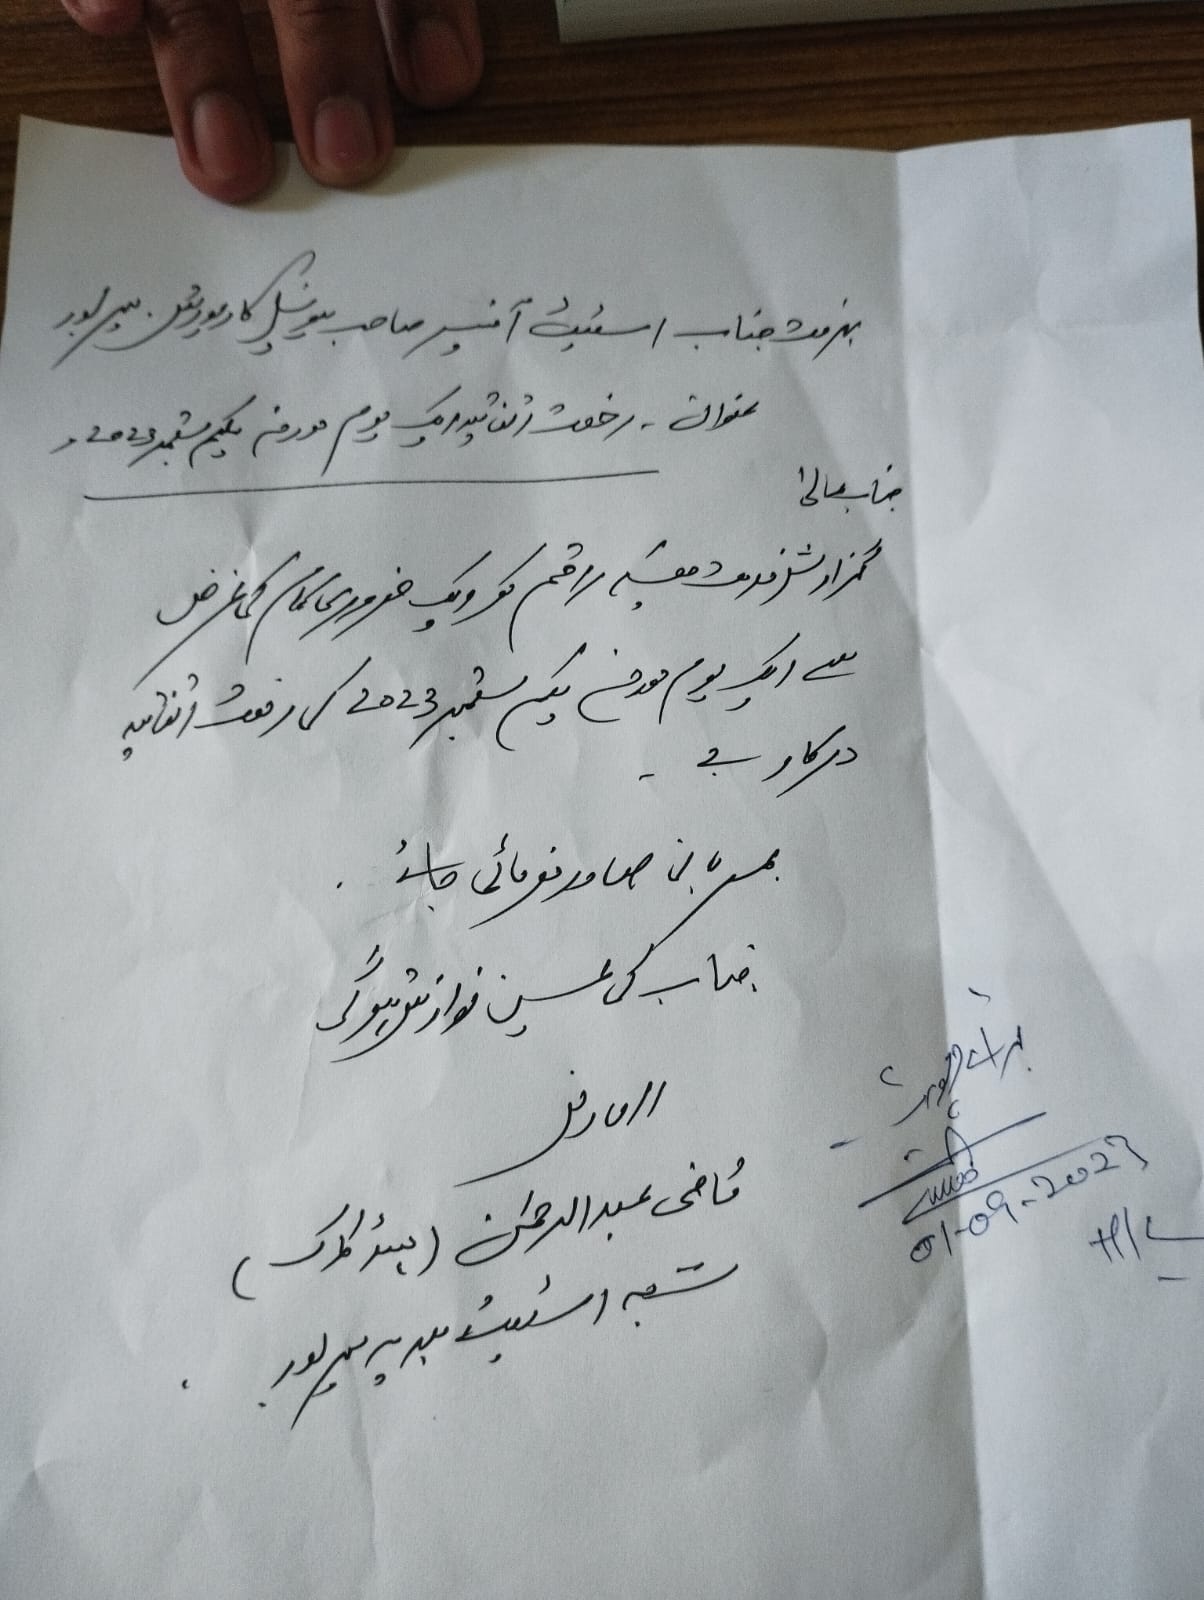 بخدمت جناب اسٹیٹ آفیسر صاحب میونسپل کارپوریشن میرپور
عنوان ۔ رخصت اتفاقیہ ایک یوم مورخہ یکم ستمبر 2023ء
جناب عالی!
گزارش خدمت ہیکہ راقم کو ایک ضروری کام کی غرض
سے ایک یوم مورخہ یکم ستمبر 2023 کی رخصت اتفاقیہ
درکار ہے ۔
مہربانی صادر فرمائی جائے ۔
جناب کی عین نوازش ہوگی
العارض
قاضی عبدالرحمٰن (ہیڈ کلرک)
شعبہ اسٹیٹ بلدیہ میرپور
برائے
01-09-2023